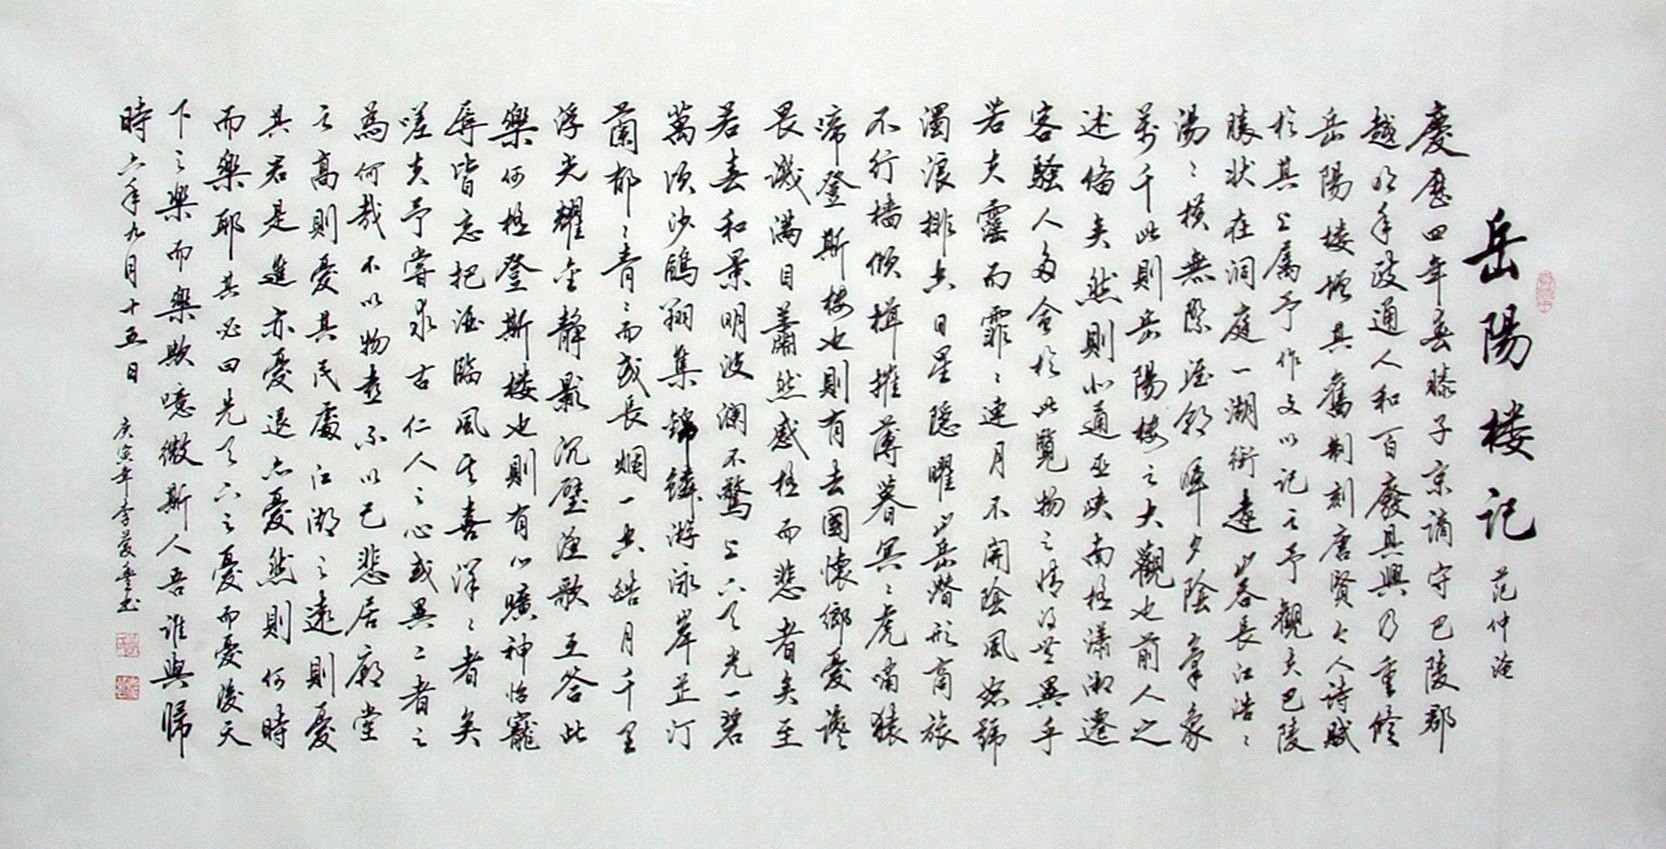 岳陽楼记 范仲淹
慶歷四年春滕子京謫守巴陵郡
越明年政通人和百廢具興乃重修
岳陽楼增其舊制刻唐賢今人詩賦
於其上属予作文以记之予觀夫巴陵
勝状在洞庭一湖銜遠山吞長江浩〻
湯〻横無際涯朝暉夕陰氣象
萬千此則岳陽楼之大觀也前人之
述備矣然則北通巫峡南極瀟湘遷
客騷人多會於此覽物之情得無異乎
若夫霪雨霏〻連月不開陰風怒號
濁浪排空日星隐曜山岳潜形商旅
不行檣傾楫摧薄暮冥〻虎嘯猿
啼登斯楼也則有去國懷鄉憂讒
畏譏满目蕭然感極而悲者矣至
若春和景明波澜不驚上下天光一碧
萬頃沙鷗翔集錦鱗游泳岸芷汀
蘭郁〻青〻而或長烟一空皓月千里
浮光耀金静影沉璧漁歌互答此
樂何極登斯楼也則有心曠神怡寵
辱皆忘把酒臨風其喜洋〻者矣
嗟夫予嘗求古仁人之心或異二者之
為何哉不以物喜不以己悲居廟堂
之高則憂其民處江湖之遠則憂
其君是進亦憂退亦憂然則何時
而樂耶其必曰先天下之憂而憂後天
下之樂而樂歟噫微斯人吾誰與歸
時六年九月十五日 庚寅年李